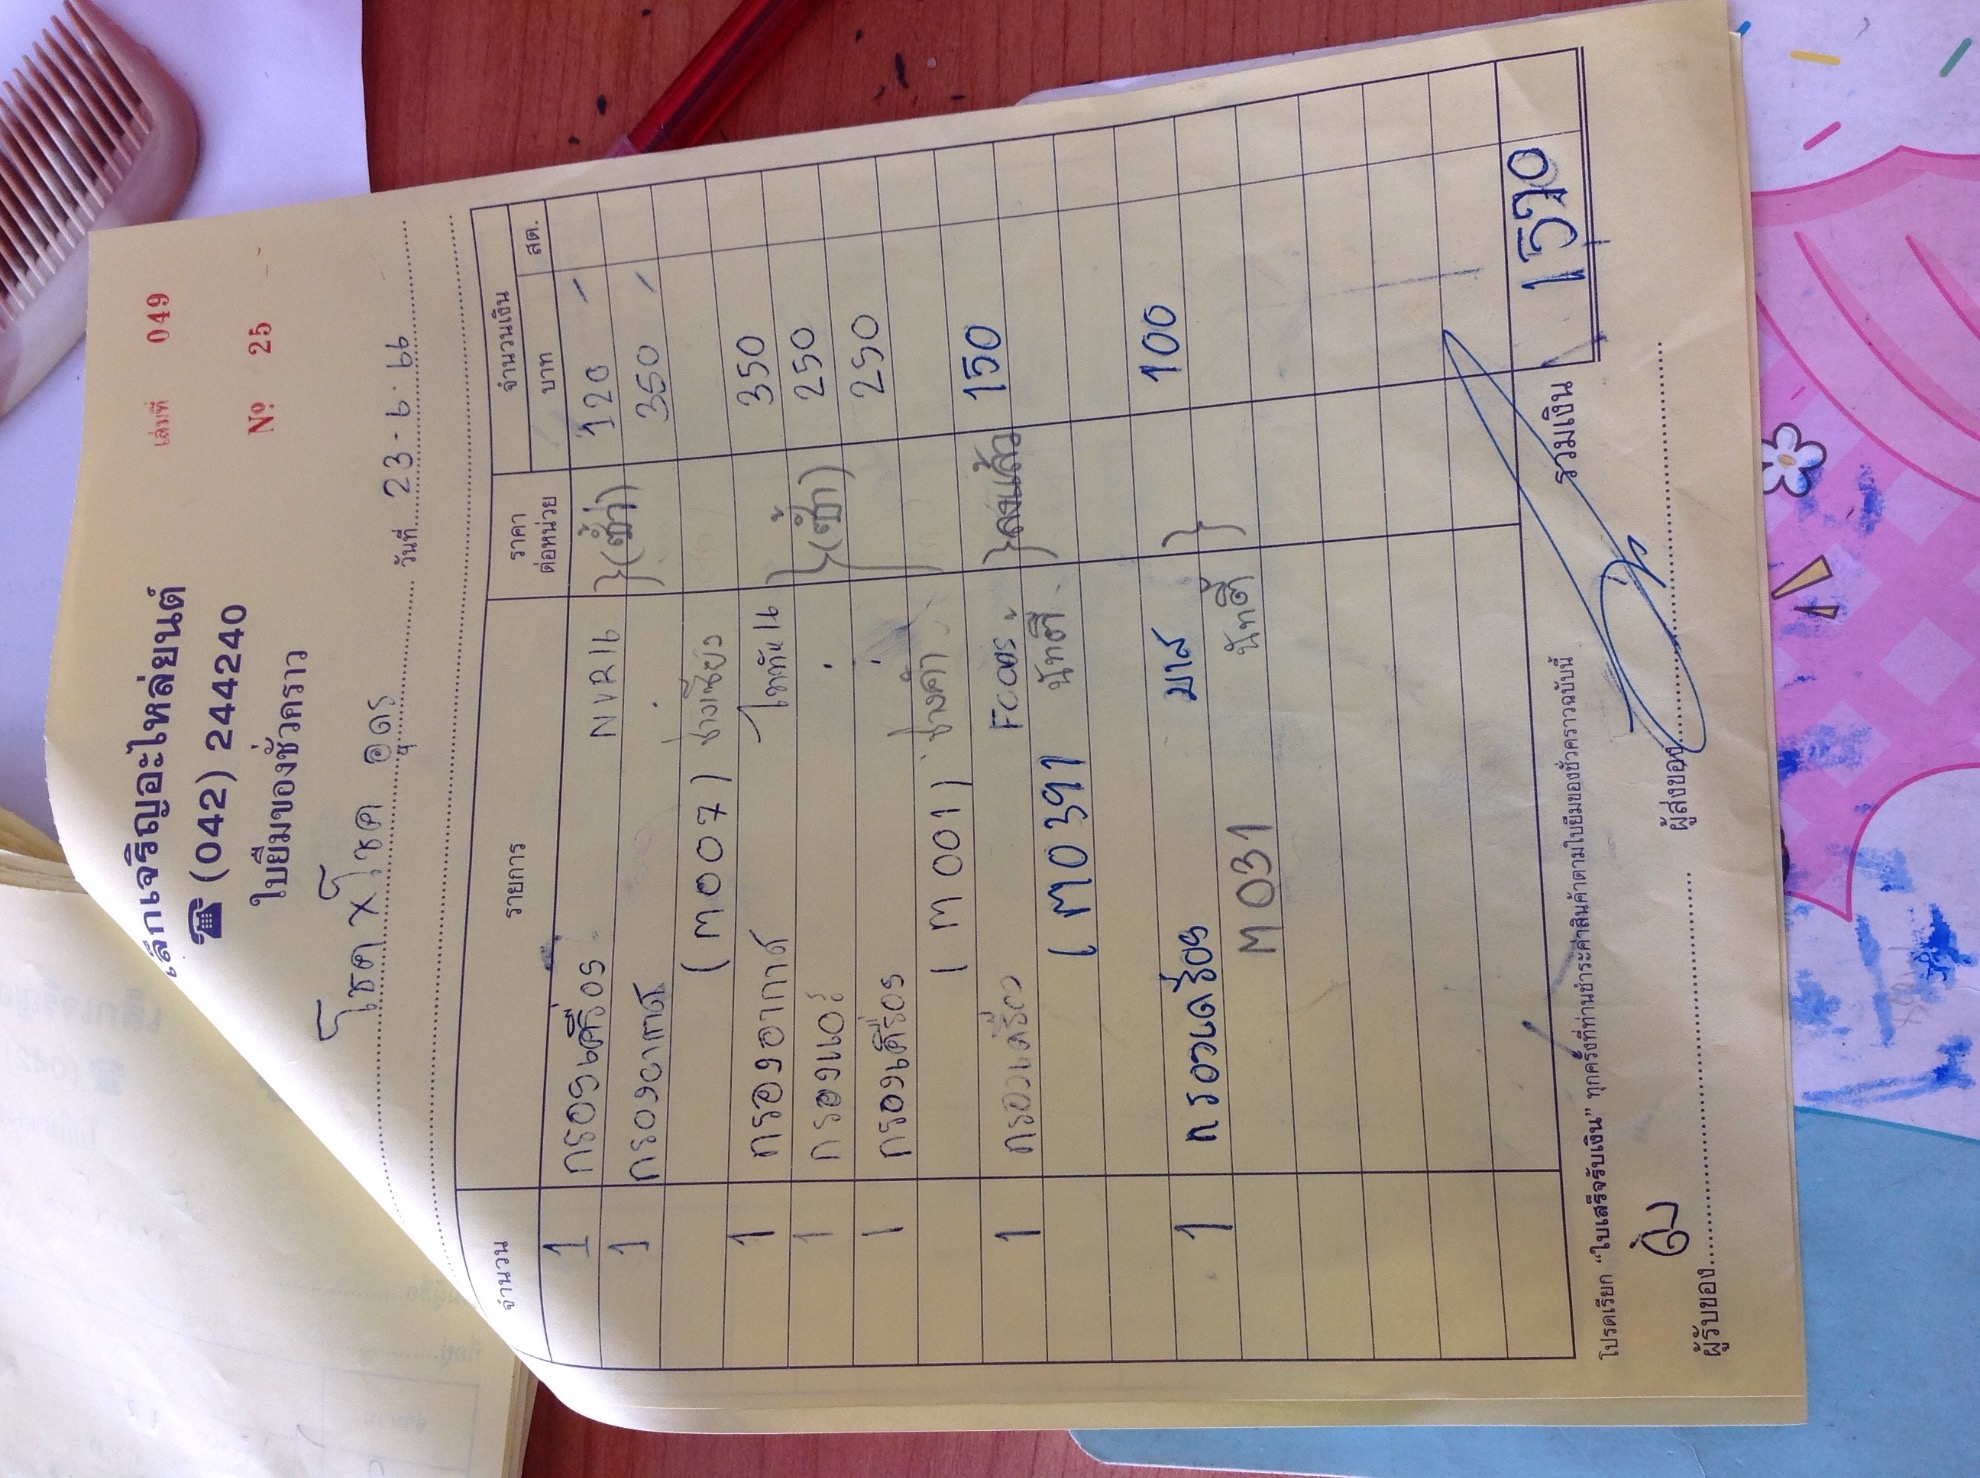 เล่มที่ 049
เล็กเจริญอะไหล่ยนต์
☎ (042) 244240
№ 25
ใบยืมของชั่วคราว
โชค X โชค อุดร วันที่ 23-6-66
จำนวน รายการ ราคาต่อหน่วย จำนวนเงิน
บาท สต.
1 กรองเครื่อง NVR 120 -
1 กรองอากาศ } (ช้ำ) 350 -
(M007) ช่างเซียง
1 กรองอากาศ ไททัน 350
1 กรองแอร์ } (ช้ำ) 250
1 กรองเครื่อง 250
(M001) ช่างต้า
1 กรองเครื่อง } ลงแล้ว 150
(M0391 นัทตี้
1 กรองเครื่อง มาส } 100
M031 นัทตี้
รวมเงิน 1570
โปรดเรียก “ใบเสร็จรับเงิน” ทุกครั้งที่ท่านชำระค่าสินค้าตามใบยืมของชั่วคราวฉบับนี้
ผู้รับของ ผู้ส่งของ